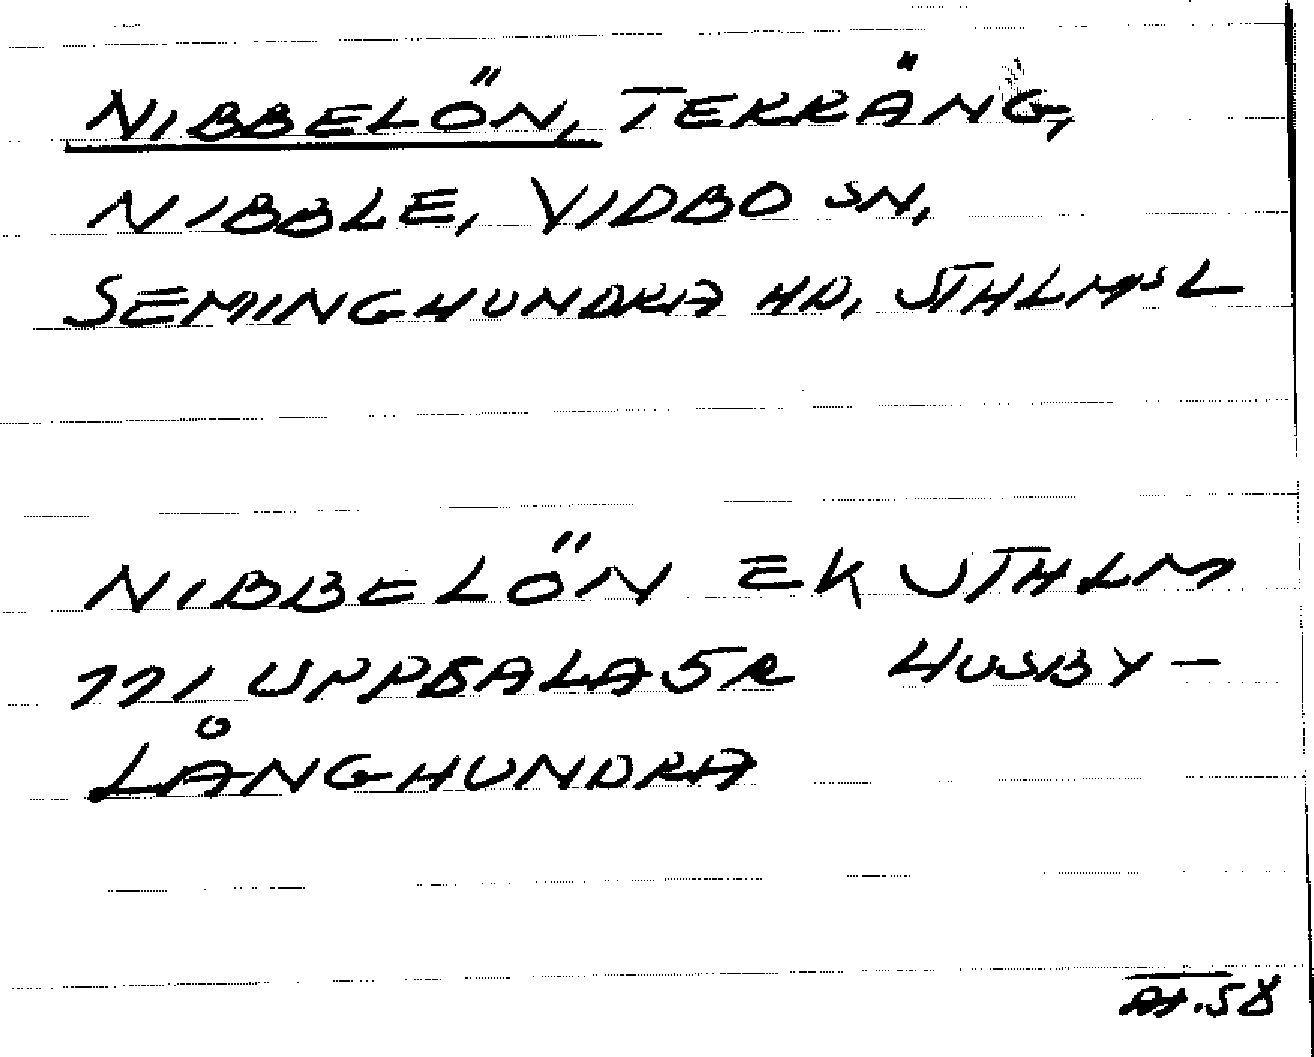 NIBBELÖN, TERRÄNG,
NIBBLE, VIDBO SN,
SEMINGHUNDRA HD, STHLMSL
NIBBELÖN EK STHLM
111 UPPSALA 5R HUSBY-
LÅNGHUNDRA